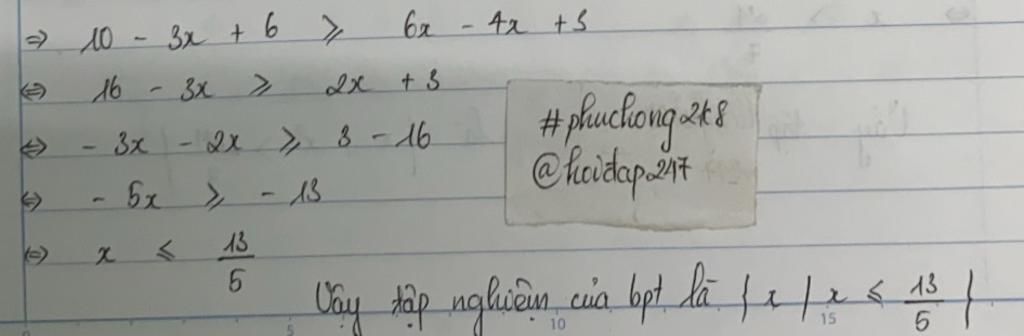 ⇒ 10 - 3x + 6 ≥ 6x - 4x + 3
⇔ 16 - 3x ≥ 2x + 3
⇔ - 3x - 2x ≥ 3 - 16
⇔ - 5x ≥ - 13
⇔ x ≤ 13/5
#phuchong2k8
@hoidap247
Vậy tập nghiệm của bpt là { x / x ≤ 13/5 }
5 10 15